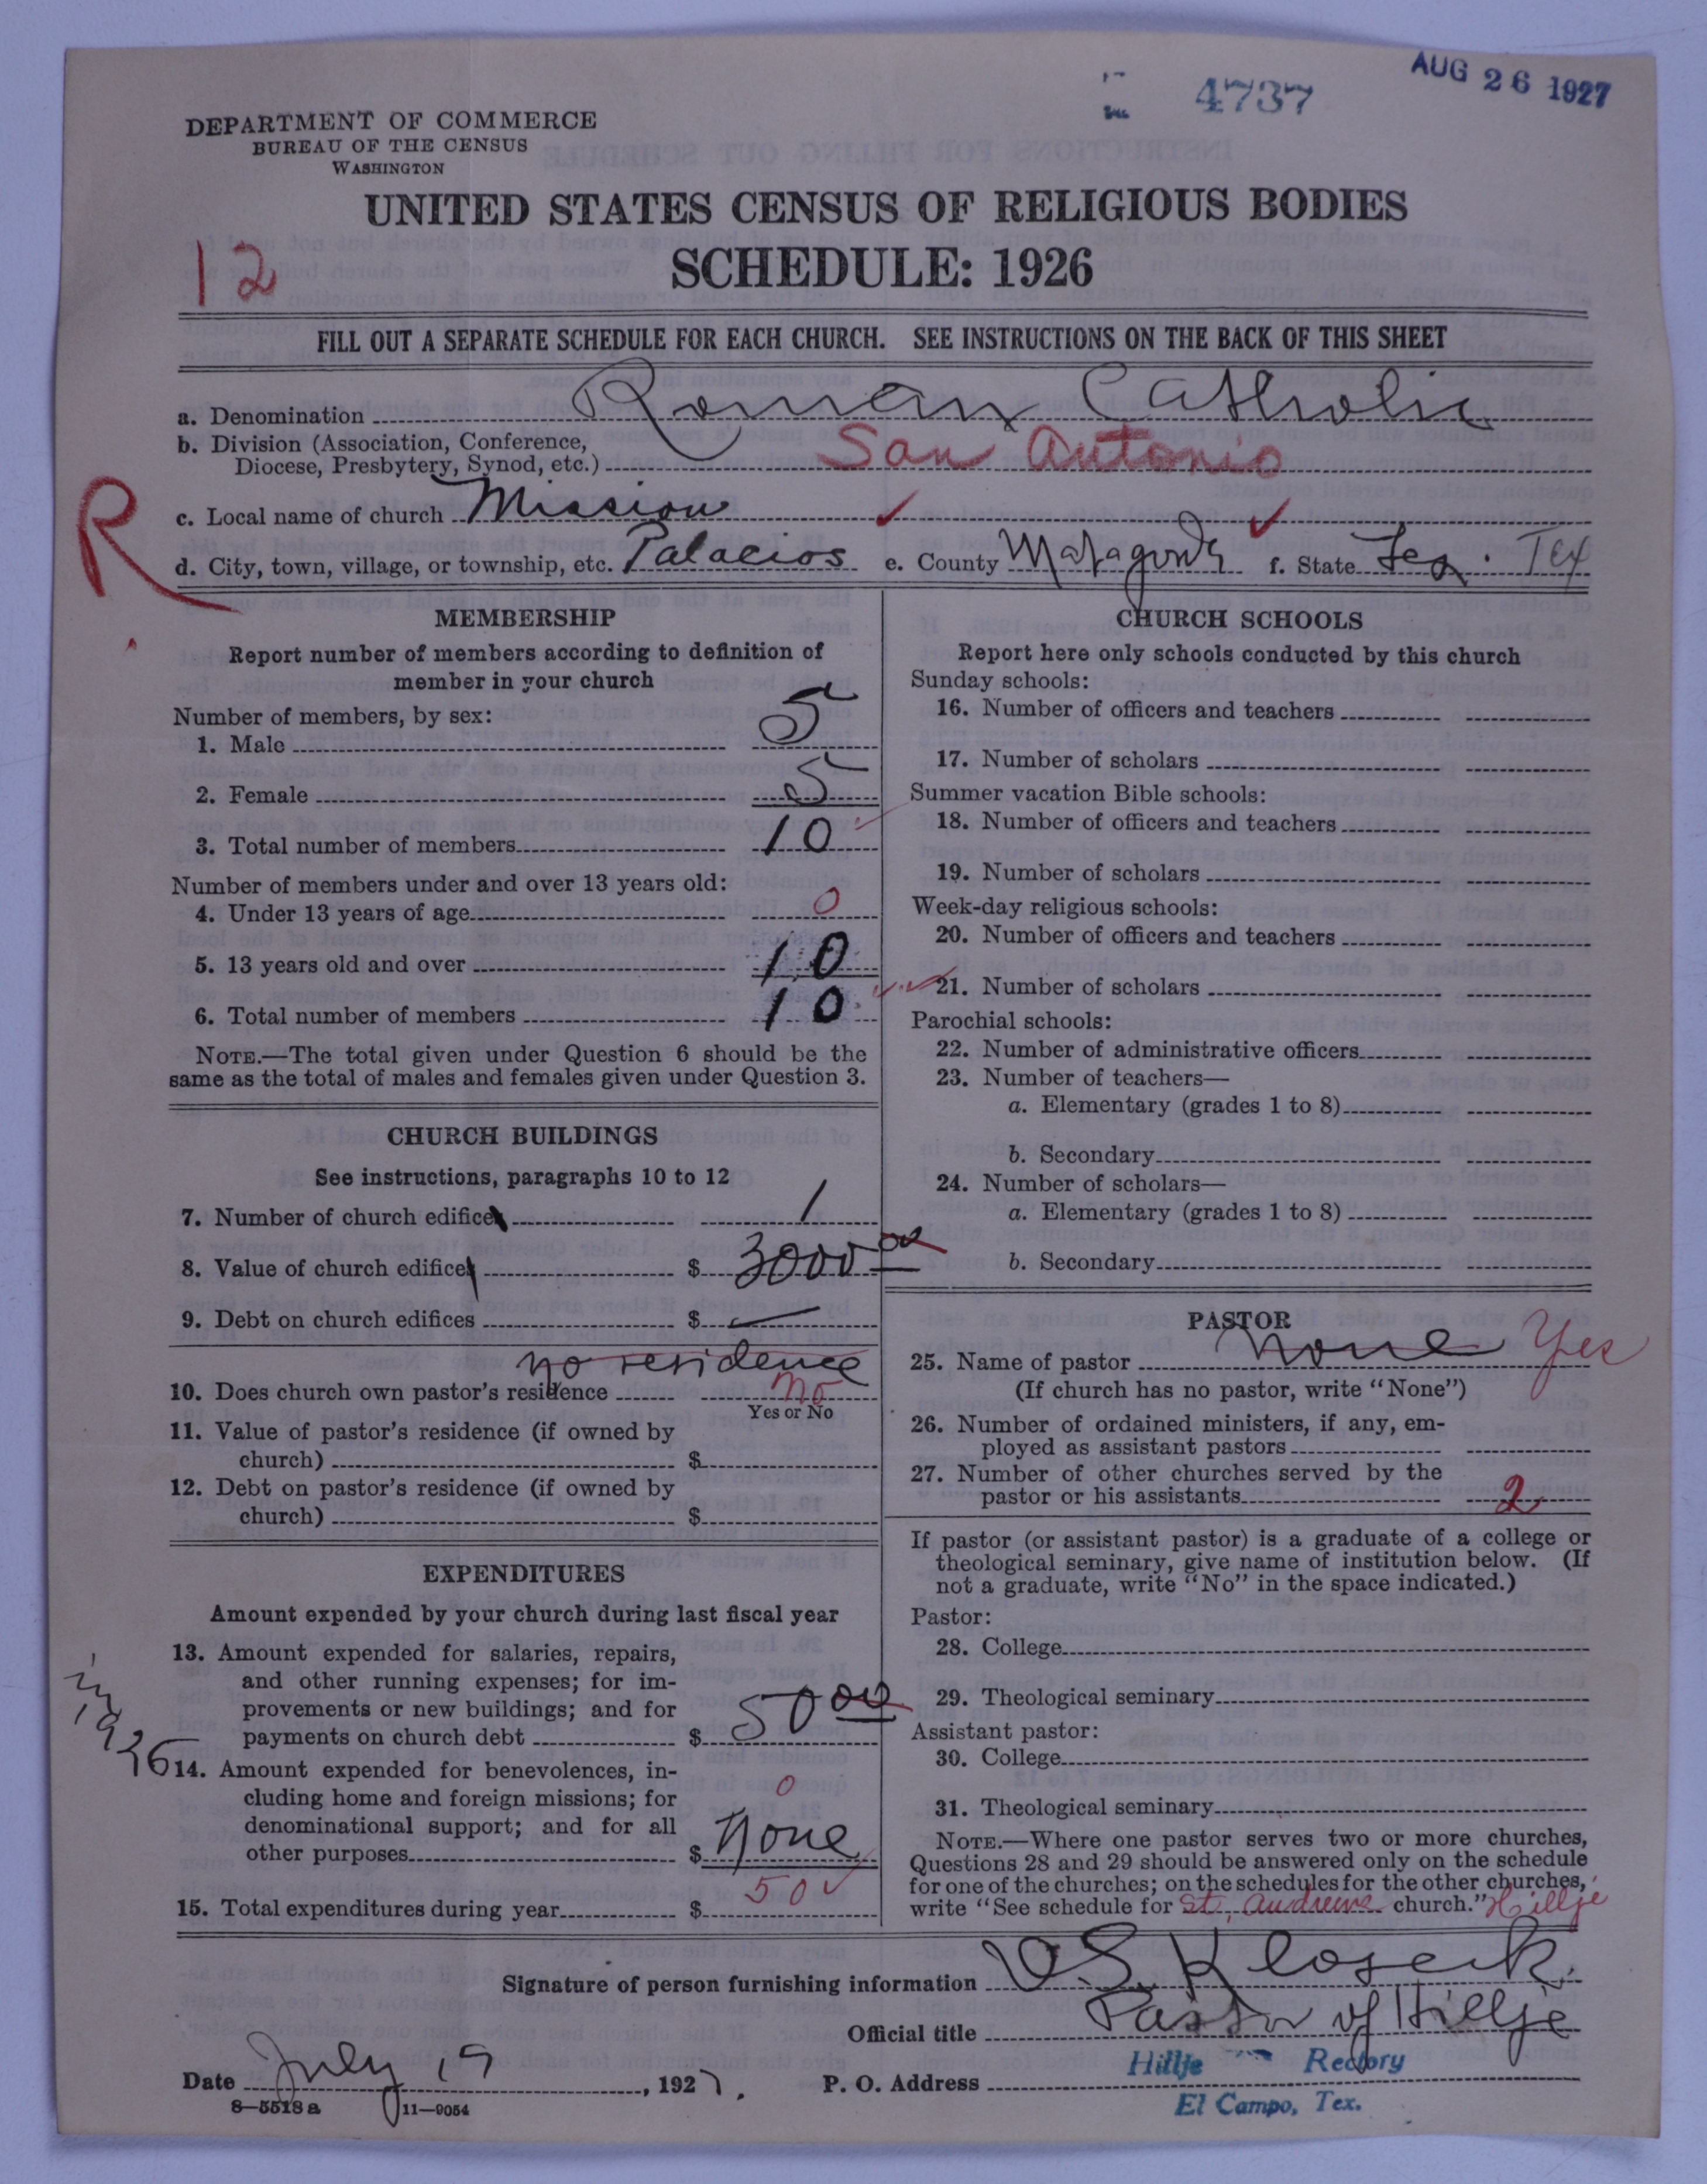 AUG 26 1927
4737
DEPARTMENT OF COMMERCE
BUREAU OF THE CENSUS
WASHINGTON
UNITED STATES CENSUS OF RELIGIOUS BODIES
12
SCHEDULE: 1926
FILL OUT A SEPARATE SCHEDULE FOR EACH CHURCH. SEE INSTRUCTIONS ON THE BACK OF THIS SHEET
a. Denomination Roman Catholic
b. Division (Association, Conference,
Diocese, Presbytery, Synod, etc.) San Antonio
R
c. Local name of church Mission
d. City, town, village, or township, etc. Palacios e. County Matagorda f. State Tex. Tex
MEMBERSHIP
Report number of members according to definition of
member in your church
Number of members, by sex:
1. Male 5
2. Female 5
3. Total number of members 10
Number of members under and over 13 years old:
4. Under 13 years of age 0
5. 13 years old and over 10
6. Total number of members 10
NOTE.—The total given under Question 6 should be the
same as the total of males and females given under Question 3.
CHURCH BUILDINGS
See instructions, paragraphs 10 to 12
7. Number of church edifice 1
8. Value of church edifice $ 3000 00
9. Debt on church edifices $ —
no residence
10. Does church own pastor's residence no
Yes or No
11. Value of pastor's residence (if owned by
church) $
12. Debt on pastor's residence (if owned by
church) $
EXPENDITURES
Amount expended by your church during last fiscal year
13. Amount expended for salaries, repairs,
and other running expenses; for im-
provements or new buildings; and for
payments on church debt $ 50 00
in 1926
14. Amount expended for benevolences, in-
cluding home and foreign missions; for 0
denominational support; and for all
other purposes $ None
15. Total expenditures during year $ 50
CHURCH SCHOOLS
Report here only schools conducted by this church
Sunday schools:
16. Number of officers and teachers
17. Number of scholars
Summer vacation Bible schools:
18. Number of officers and teachers
19. Number of scholars
Week-day religious schools:
20. Number of officers and teachers
21. Number of scholars
Parochial schools:
22. Number of administrative officers
23. Number of teachers—
a. Elementary (grades 1 to 8)
b. Secondary
24. Number of scholars—
a. Elementary (grades 1 to 8)
b. Secondary
PASTOR
25. Name of pastor None Yes
(If church has no pastor, write "None")
26. Number of ordained ministers, if any, em-
ployed as assistant pastors
27. Number of other churches served by the
pastor or his assistants 2
If pastor (or assistant pastor) is a graduate of a college or
theological seminary, give name of institution below. (If
not a graduate, write "No" in the space indicated.)
Pastor:
28. College
29. Theological seminary
Assistant pastor:
30. College
31. Theological seminary
NOTE.—Where one pastor serves two or more churches,
Questions 28 and 29 should be answered only on the schedule
for one of the churches; on the schedules for the other churches,
write "See schedule for St. Andrews church." Hillje
Signature of person furnishing information
Official title Pastor of Hillje
Date July 19, 1927. P. O. Address Hillje Rectory
El Campo, Tex.
8-5518a 11-9054